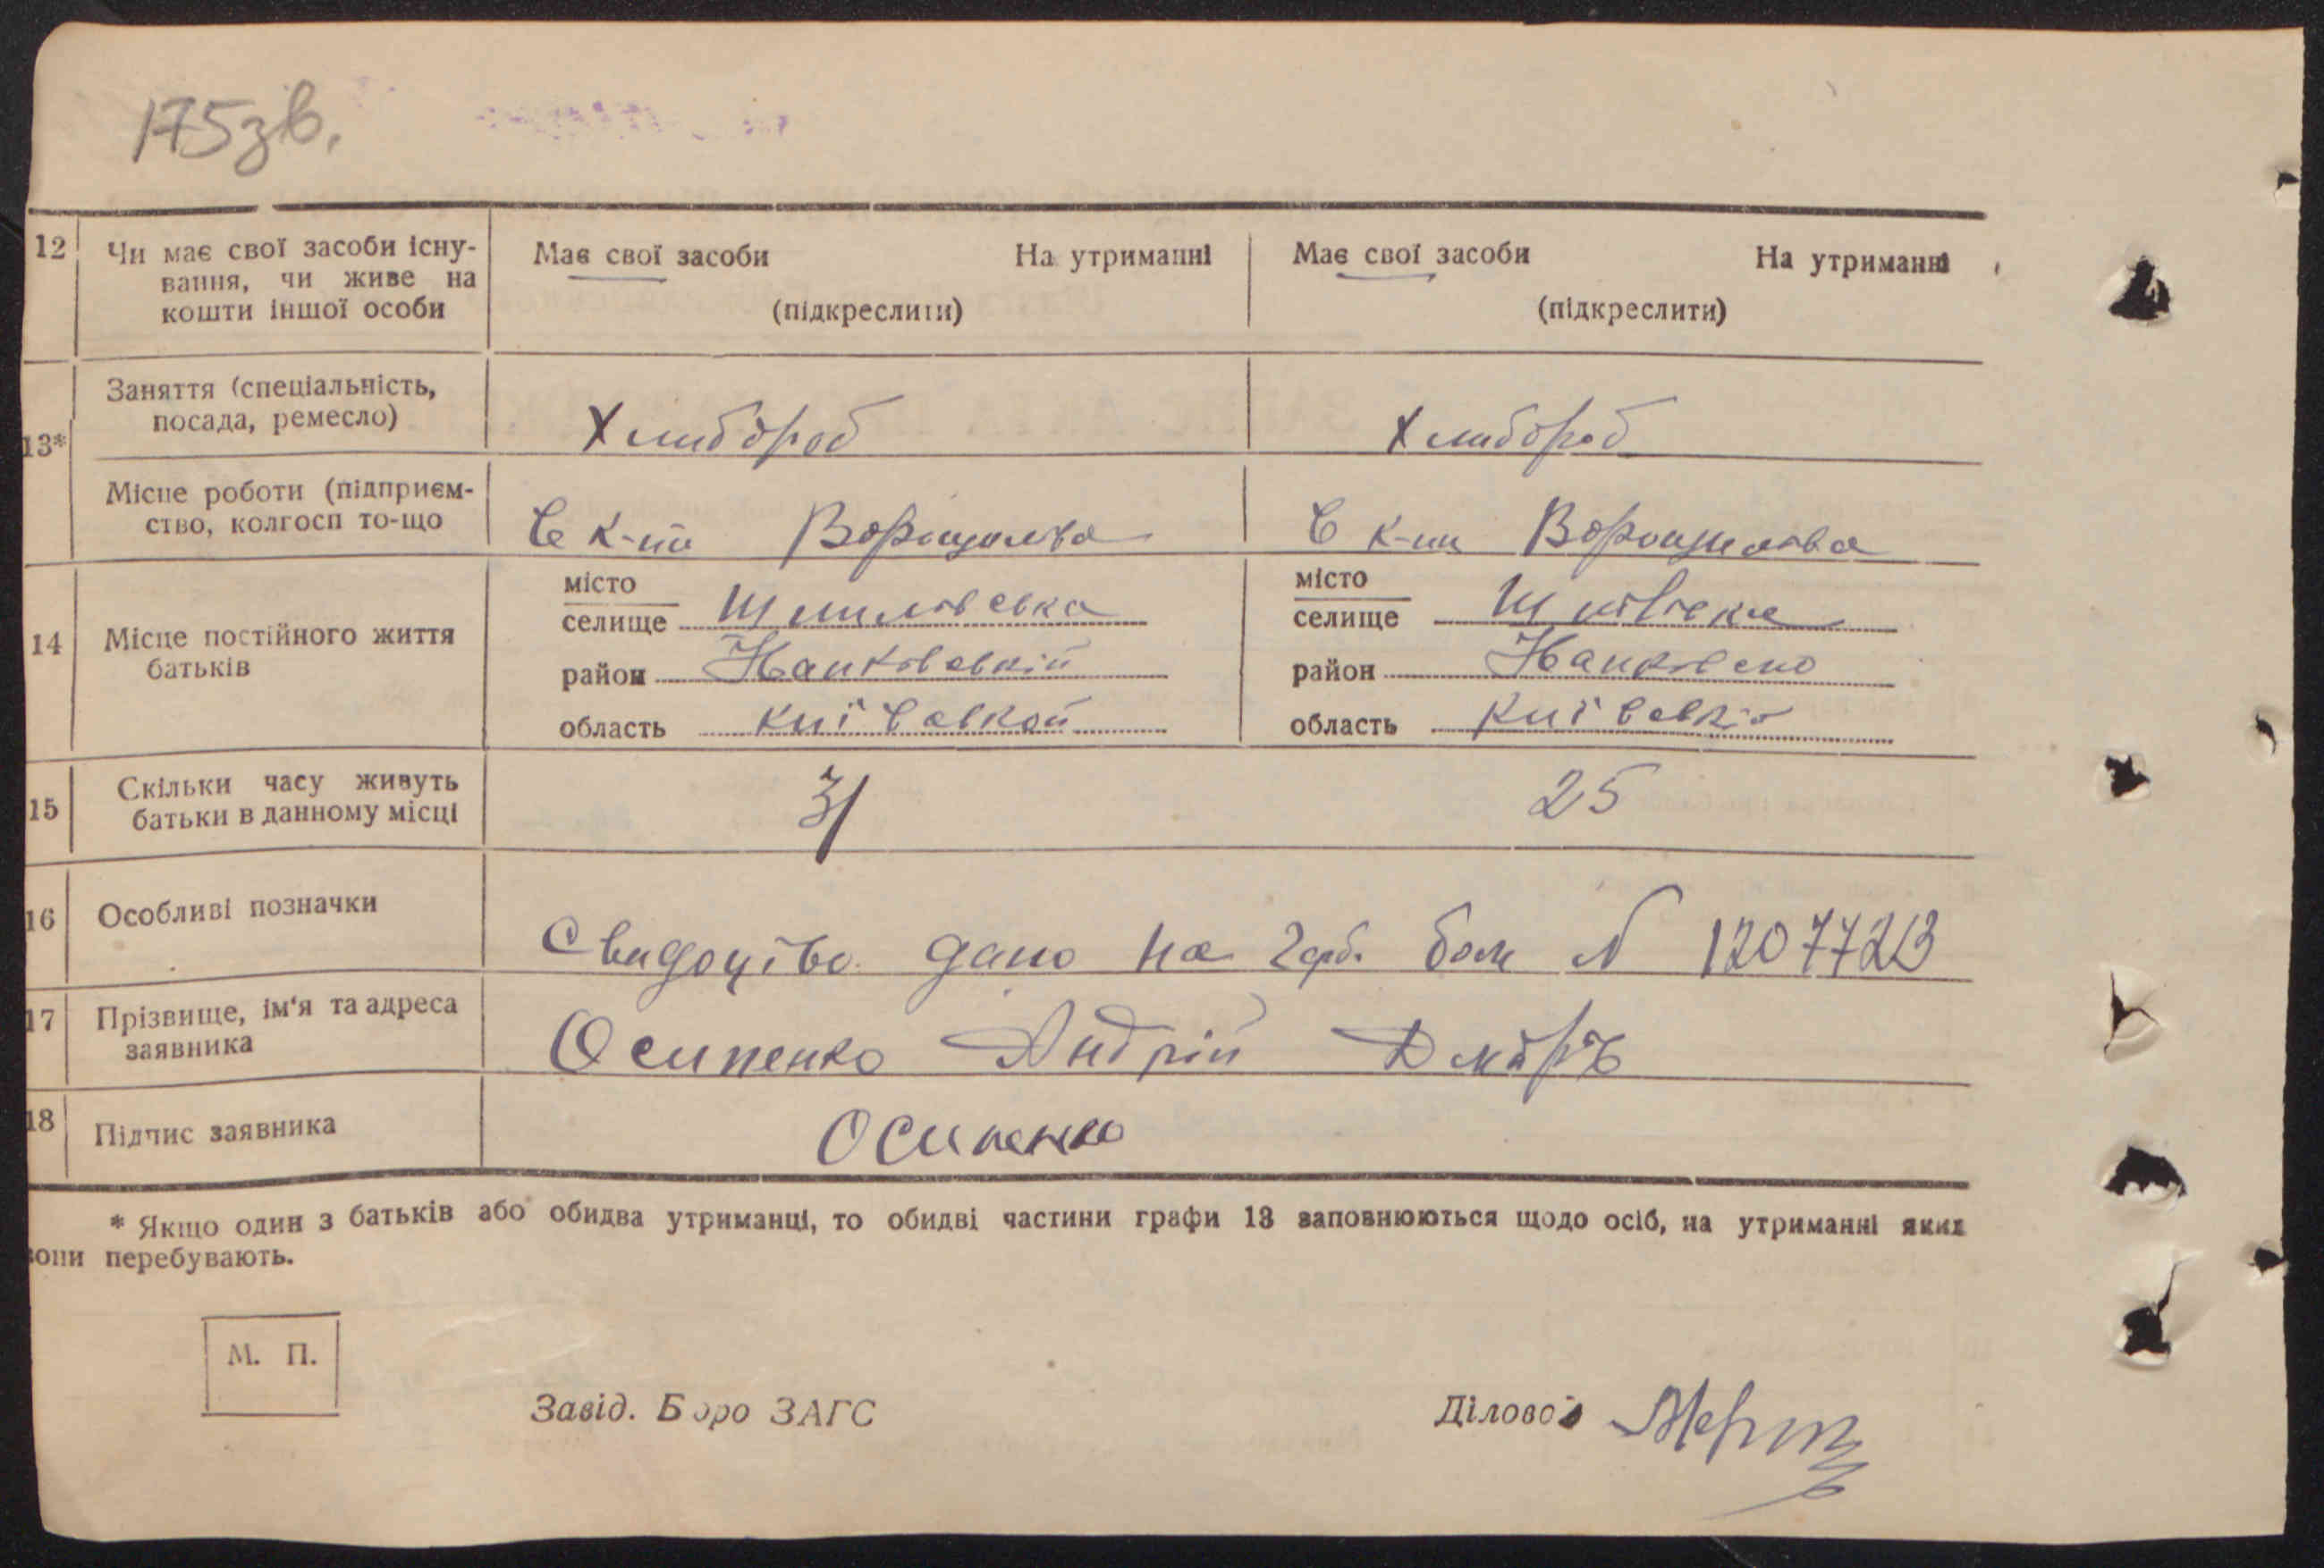 175зв.
12 Чи має свої засоби існу- Має свої засоби На утриманні Має свої засоби На утриманні
вання, чи живе на
кошти іншої особи (підкреслити) (підкреслити)
Заняття (спеціальність,
посада, ремесло) Хлибороб Хлибороб
13*
Місце роботи (підприєм-
ство, колгосп то-що В к-пі Ворошилова В к-пи Ворошилова
місто місто
селище селище
14 Місце постійного життя
батьків район район
область київської область київській
15 Скільки часу живуть 31 25
батьки в данному місці
16 Особливі позначки
Свидоцтво дано на герб. бом N 1207723
17 Прізвище, ім'я та адреса
заявника Осипенко Андрій
18 Підпис заявника Осипенко
* Якщо один з батьків або обидва утриманці, то обидві частини графи 13 заповнюються щодо осіб, на утриманні яких
вони перебувають.
М. П.
Завід. Бюро ЗАГС Діловод